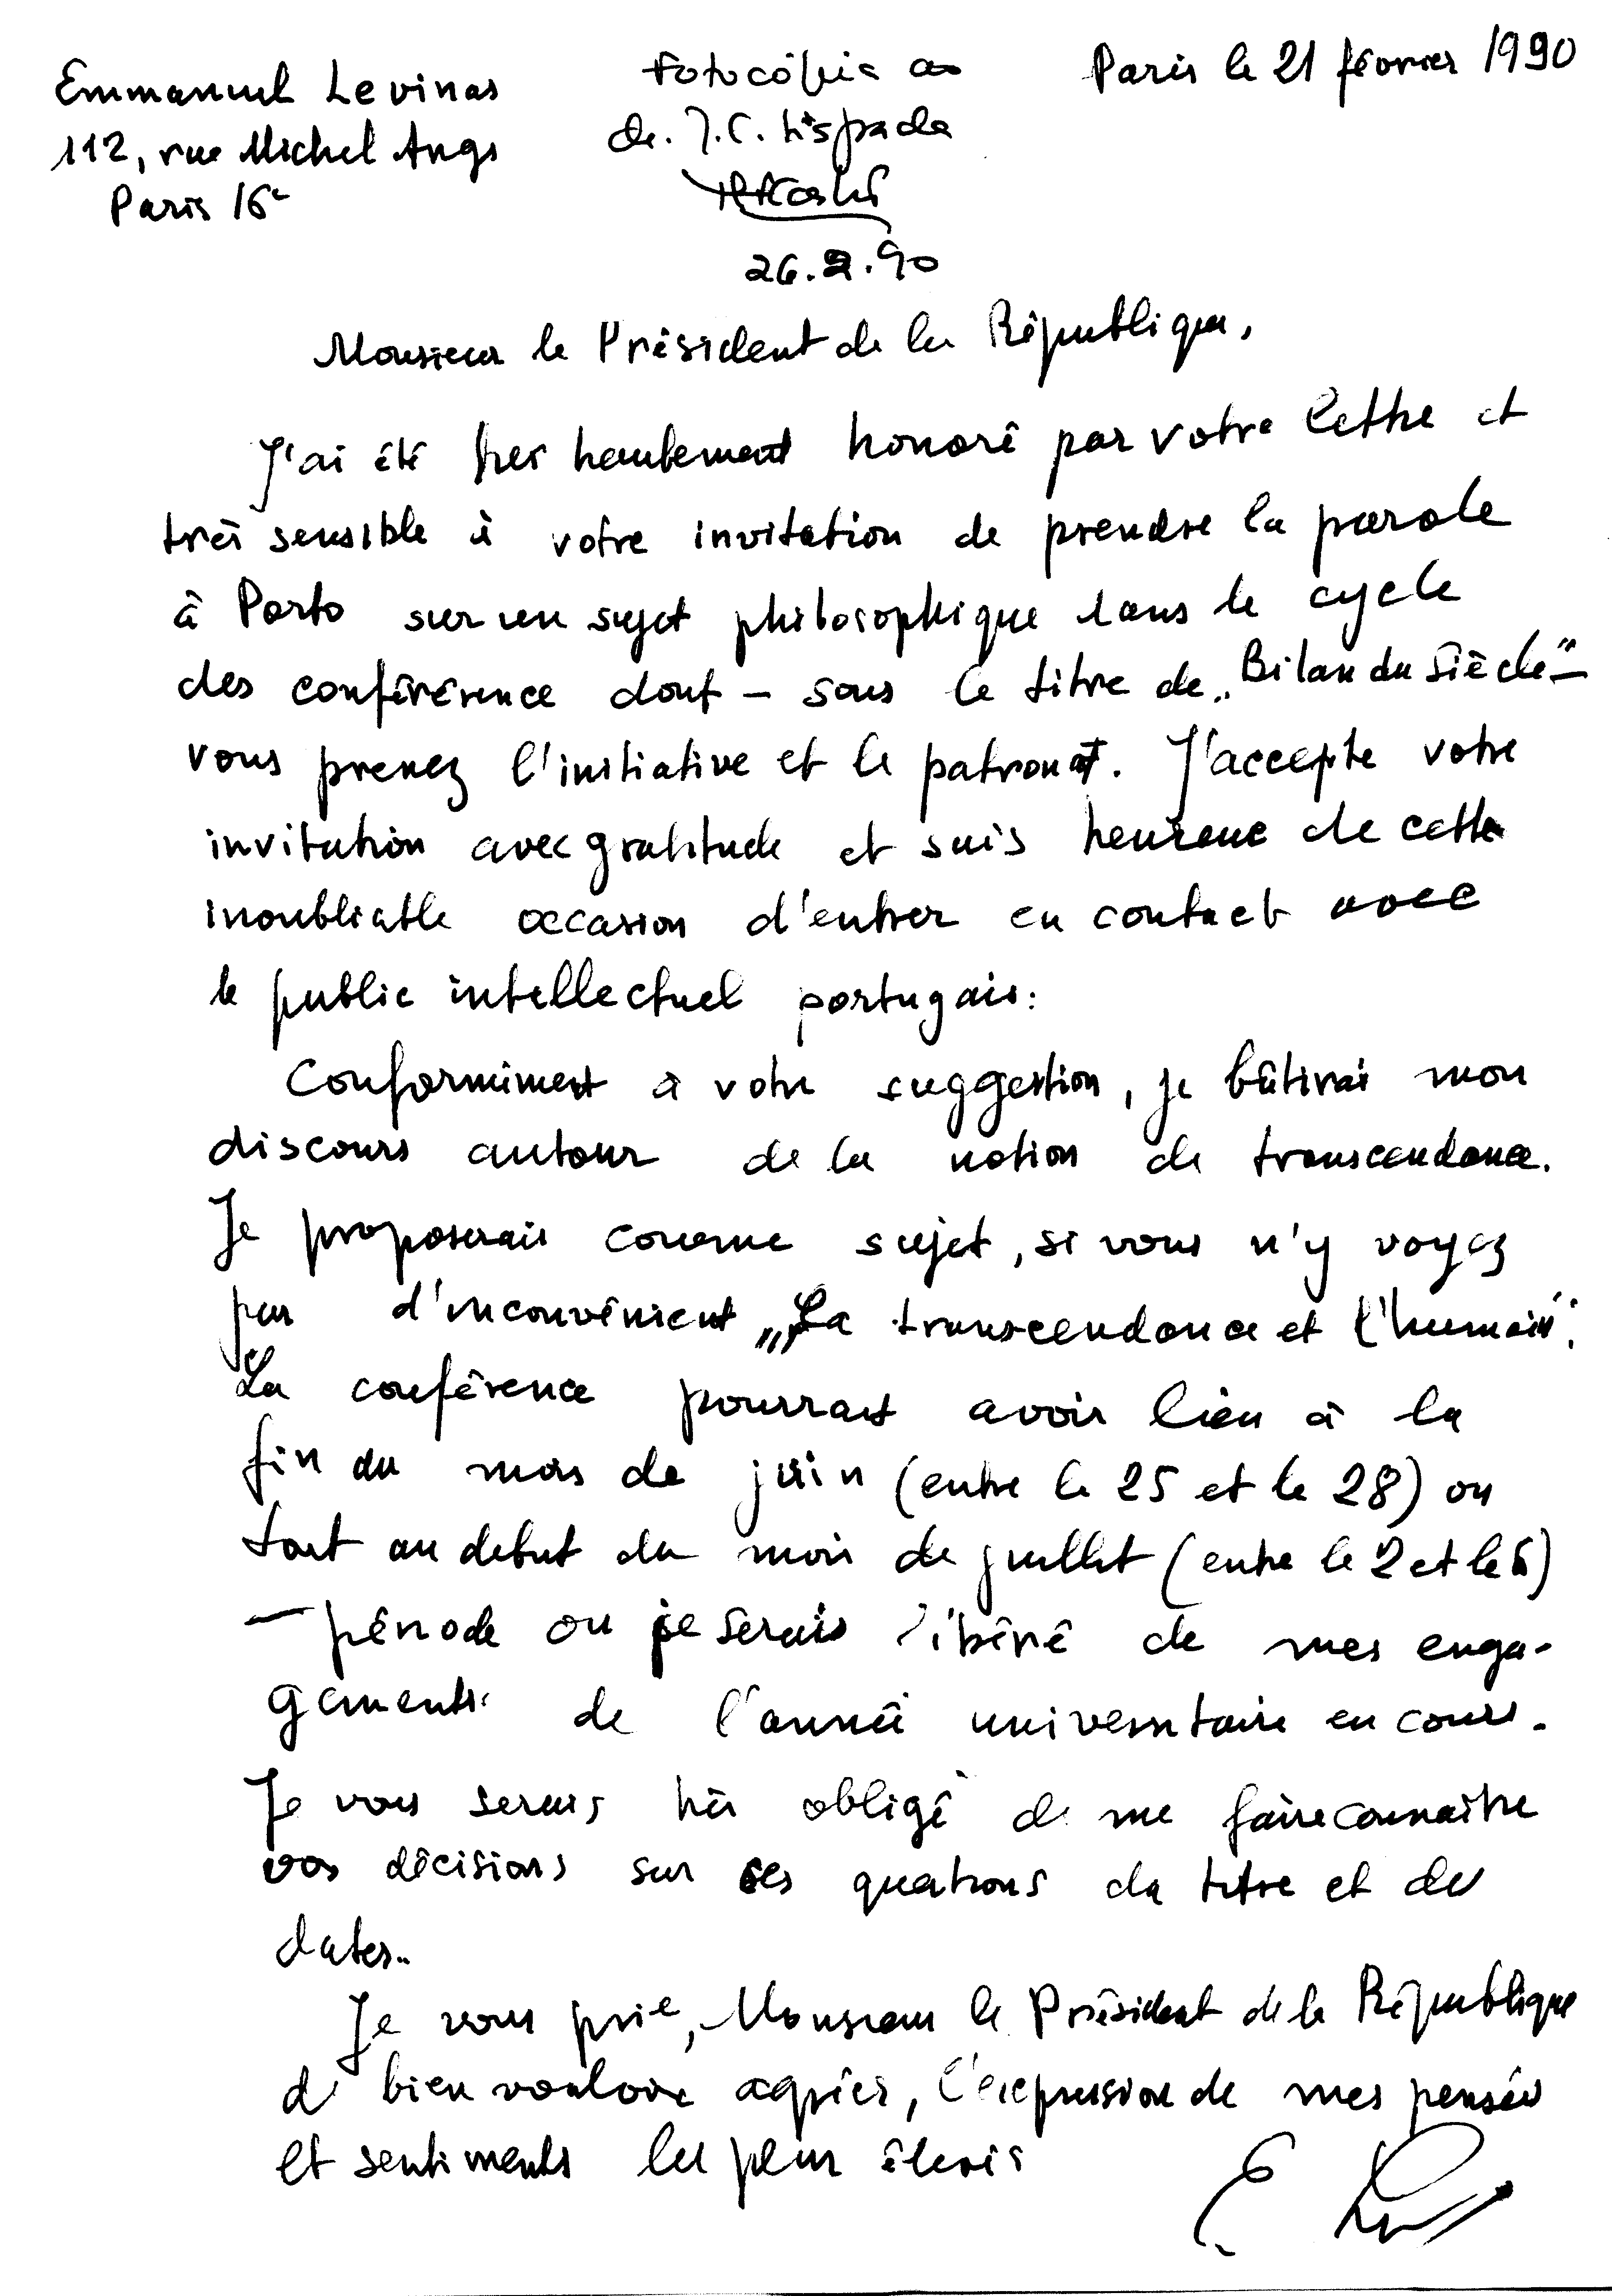 Emmanuel Levinas
112, rue Michel Ange
Paris 16e
Fotocópia ao
dr. J. C.
26.2.90
Paris le 21 février 1990
Monsieur le Président de la République,
J'ai été très hautement honoré par votre lettre et
très sensible à votre invitation de prendre la parole
à Porto sur un sujet philosophique dans le cycle
des conférence dont – sous le titre de „Bilan du Siècle" –
vous prenez l'initiative et le patronat. J'accepte votre
invitation avec gratitude et suis heureux de cette
inoubliable occasion d'entrer en contact avec
le public intellectuel portugais.
Conformément à votre suggestion, je bâtirai mon
discours autour de la notion de transcendance.
Je proposerais comme sujet, si vous n'y voyez
pas d'inconvénient „La transcendance et l'humain".
La conférence pourrait avoir lieu à la
fin du mois de juin (entre le 25 et le 28) ou
tout au debut du mois de juillet (entre le 2 et le 6)
– période où je serais libéré de mes enga-
gements de l'année universitaire en cours.
Je vous serais très obligé de me faire connaitre
vos décisions sur ces questions du titre et des
dates.
Je vous prie, Monsieur le Président de la République
de bien vouloir agréer, l'expression de mes pensées
et sentiments les plus élevés